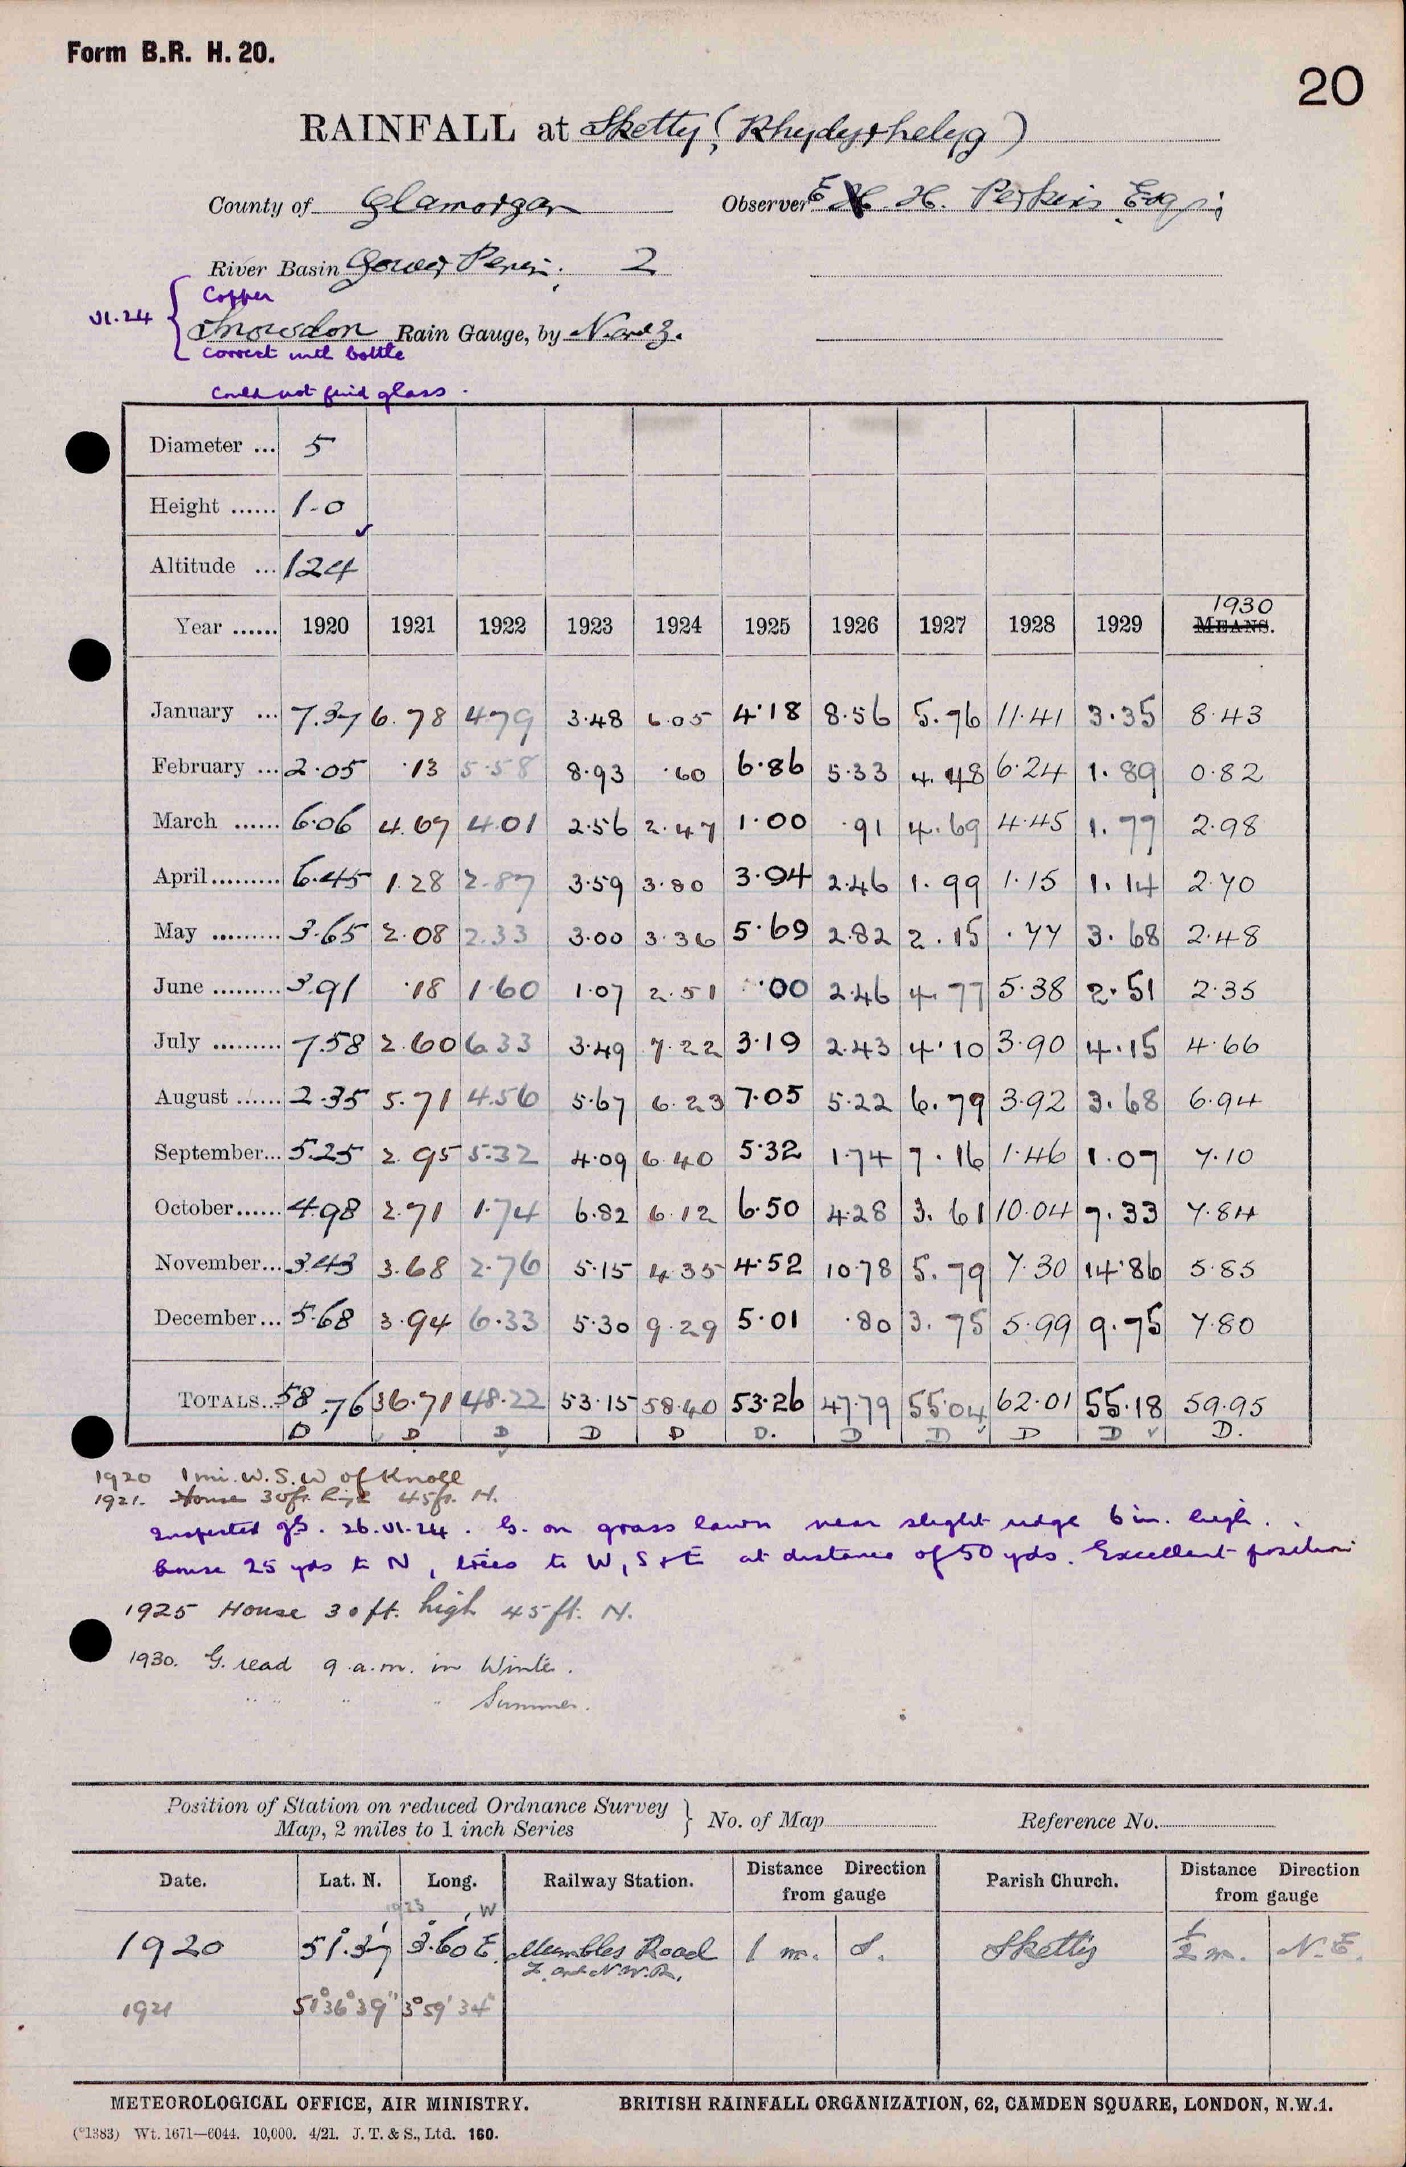 Form B.R. H. 20.
20
RAINFALL at Sketty (Rhydyrhelyg)
County of Glamorgan Observer E H. H. Perkins Esq;
River Basin Gower Penin. 2
Copper
VI.24 { Snowdon Rain Gauge, by N. and Z.
Correct with bottle
Could not find glass.
Diameter ... 5
Height ...... 1-0
Altitude ... 124
Year ...... 1920 1921 1922 1923 1924 1925 1926 1927 1928 1929 MEANS. 1930
January ... 7.37 6.78 4.79 3.48 6.05 4.18 8.56 5.76 11.41 3.35 8.43
February ... 2.05 .13 5.58 8.93 .60 6.86 5.33 4.48 6.24 1.89 0.82
March ...... 6.06 4.67 4.01 2.56 2.47 1.00 .91 4.69 4.45 1.77 2.98
April......... 6.45 1.28 2.87 3.59 3.80 3.94 2.46 1.99 1.15 1.14 2.70
May ......... 3.65 2.08 2.33 3.00 3.36 5.69 2.82 2.15 .77 3.68 2.48
June ......... 3.91 .18 1.60 1.07 2.51 .00 2.46 4.77 5.38 2.51 2.35
July ......... 7.58 2.60 6.33 3.49 7.22 3.19 2.43 4.10 3.90 4.15 4.66
August ...... 2.35 5.71 4.56 5.67 6.23 7.05 5.22 6.79 3.92 3.68 6.94
September... 5.25 2.95 5.32 4.09 6.40 5.32 1.74 7.16 1.46 1.07 7.10
October...... 4.98 2.71 1.74 6.82 6.12 6.50 4.28 3.61 10.04 7.33 7.84
November... 3.43 3.68 2.76 5.15 4.35 4.52 10.78 5.79 7.30 14.86 5.85
December... 5.68 3.94 6.33 5.30 9.29 5.01 .80 3.75 5.99 9.75 7.80
TOTALS... 58.76 36.71 48.22 53.15 58.40 53.26 47.79 55.04 62.01 55.18 59.95
D D D D D D. D D D D D.
1920 1 mi. W.S.W of Knoll
1921. House 30ft. high 45ft. N.
Inspected 26.VI.24. G. on grass lawn near slight ridge 6 in. high.
house 25 yds to N, trees to W, S & E at distance of 50 yds. Excellent position
1925 House 30ft. high 45ft. N.
1930. G. read 9 a.m. in Winter.
" " " " Summer.
Position of Station on reduced Ordnance Survey
Map, 2 miles to 1 inch Series } No. of Map Reference No.
Date. Lat. N. Long. Railway Station. Distance Direction from gauge Parish Church. Distance Direction from gauge
1923 W
1920 51°.37' 3°.60' E. Mumbles Road 1 m. S. Sketty ½ m. N.E.
L. and N.W.R.
1921 51°36'39" 3°59'34"
METEOROLOGICAL OFFICE, AIR MINISTRY. BRITISH RAINFALL ORGANIZATION, 62, CAMDEN SQUARE, LONDON, N.W.1.
(*1383) Wt. 1671—6044. 10,000. 4/21. J. T. & S., Ltd. 160.